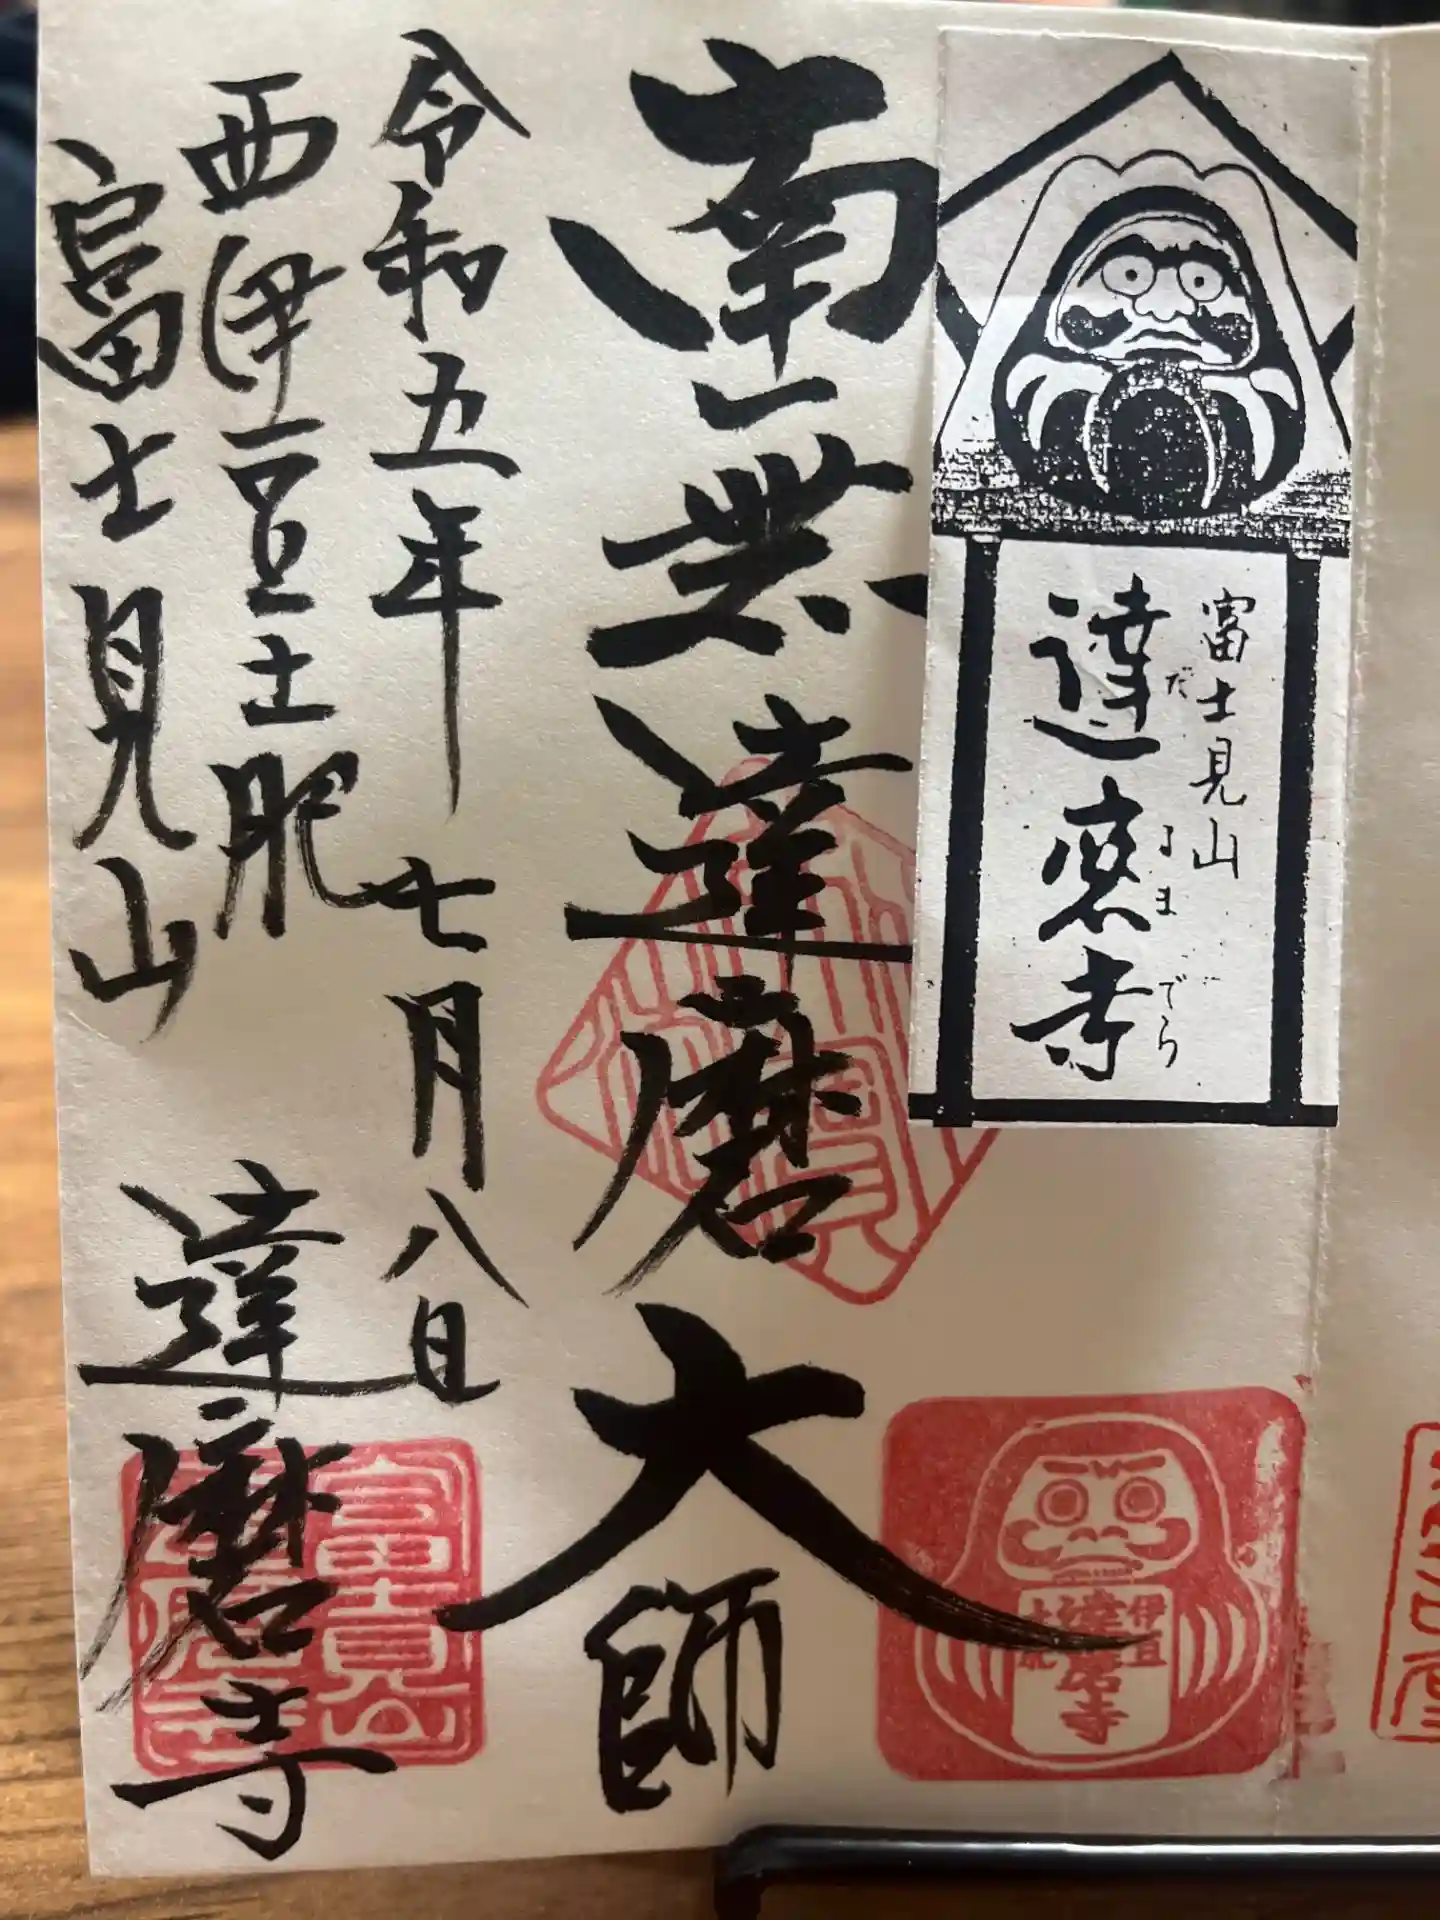 富士見山
達磨寺
だるまでら
南無達磨大師
令和五年 七月八日
西伊豆土肥
富士見山 達磨寺
伊豆
達磨寺
土肥
富士見山
達磨寺